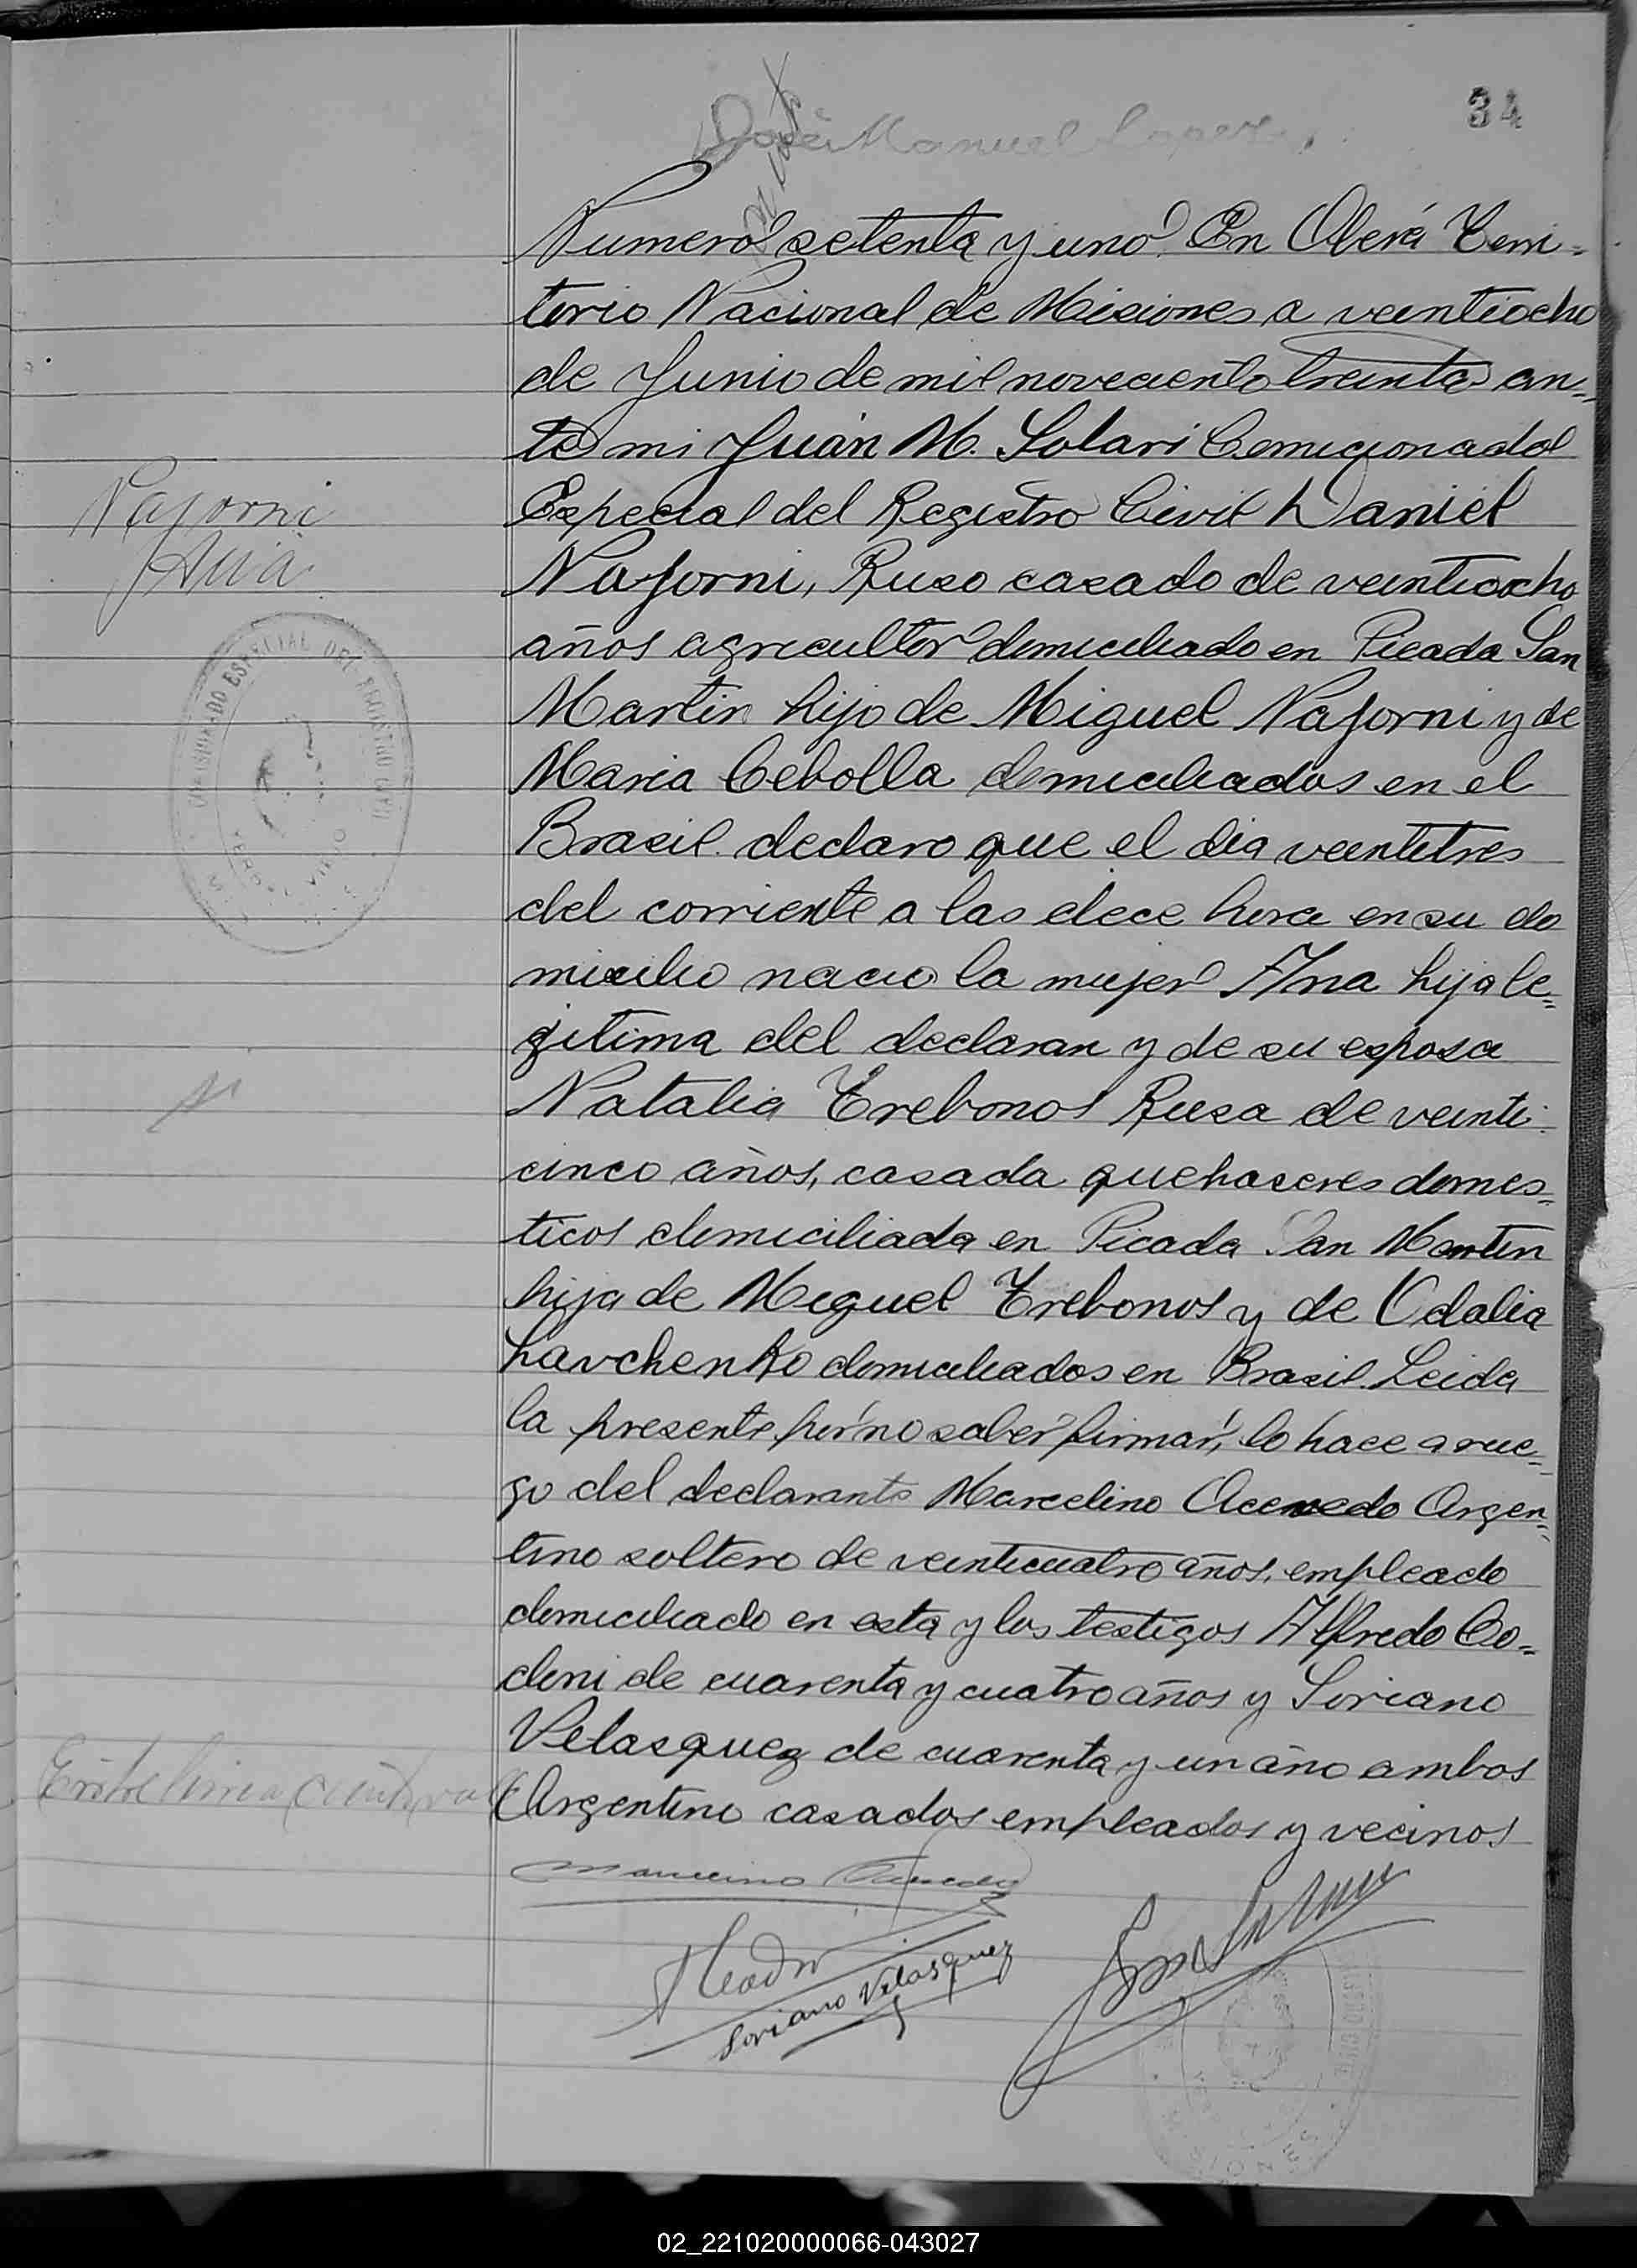 34
José Manuel Lopez
Numero setenta y uno. En Oberá Terri-
torio Nacional de Misiones a veintiocho
de Junio de mil noveciento treinta an-
te mi Juán M. Solari Comicionado
Especial del Registro Civil Daniel
Najorni
Ana
Najorni, Ruso casado de veintiocho
años agricultor domiciliado en Picada San
Martin hijo de Miguel Najorni y de
Maria Cebolla domiciliados en el
Brasil declaro que el dia veintitres
del corriente a las doce hora en su do
micilio nacio la mujer Ana hija le=
gitima del declaran y de su esposa
Natalia Trebonos Rusa de veinti
cinco años, casada quehaseres domes=
ticos domiciliada en Picada San Martin
hija de Miguel Trebonos y de Odalia
Lavchenko domiciliados en Brasil. Leida
la presente por no saber firmar, lo hace a rue=
go del declarante Marcelino Acevedo Argen=
tino soltero de veinticuatro años, empleado
domiciliado en esta y los testigos Alfredo Co=
doni de cuarenta y cuatro años y Soriano
Velasquez de cuarenta y un año ambos
Argentino casados empleados y vecinos
COMISIONADO ESPECIAL DEL REGISTRO CIVIL
YERBAL VIEJO
Marcelino Acevedo
Soriano Velasquez
REGISTRO CIVIL
MISIONES
02_221020000066-043027